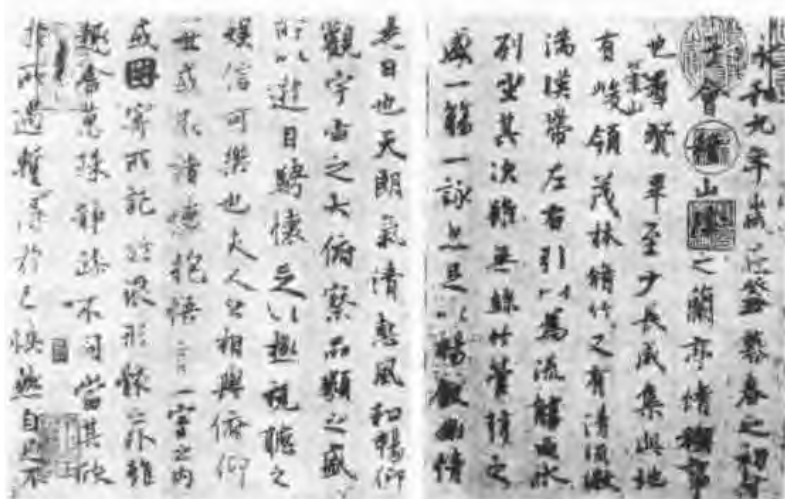 永和九年歲在癸丑暮春之初會
于會稽山陰之蘭亭脩禊事
也羣賢畢至少長咸集此地
有崇山峻領茂林脩竹又有清流激
湍暎帶左右引以為流觴曲水
列坐其次雖無絲竹管弦之
盛一觴一詠亦足以暢叙幽情
是日也天朗氣清惠風和暢仰
觀宇宙之大俯察品類之盛
所以遊目騁懷足以極視聽之
娛信可樂也夫人之相與俯仰
一世或取諸懷抱悟言一室之內
或因寄所託放浪形骸之外雖
趣舍萬殊靜躁不同當其欣
於所遇暫得於己快然自足不